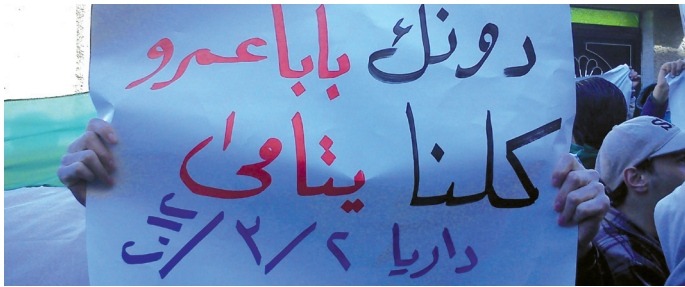 دونك بابا عمرو
كلنا يتامى
داريا ٢/٣/٢٠١٢